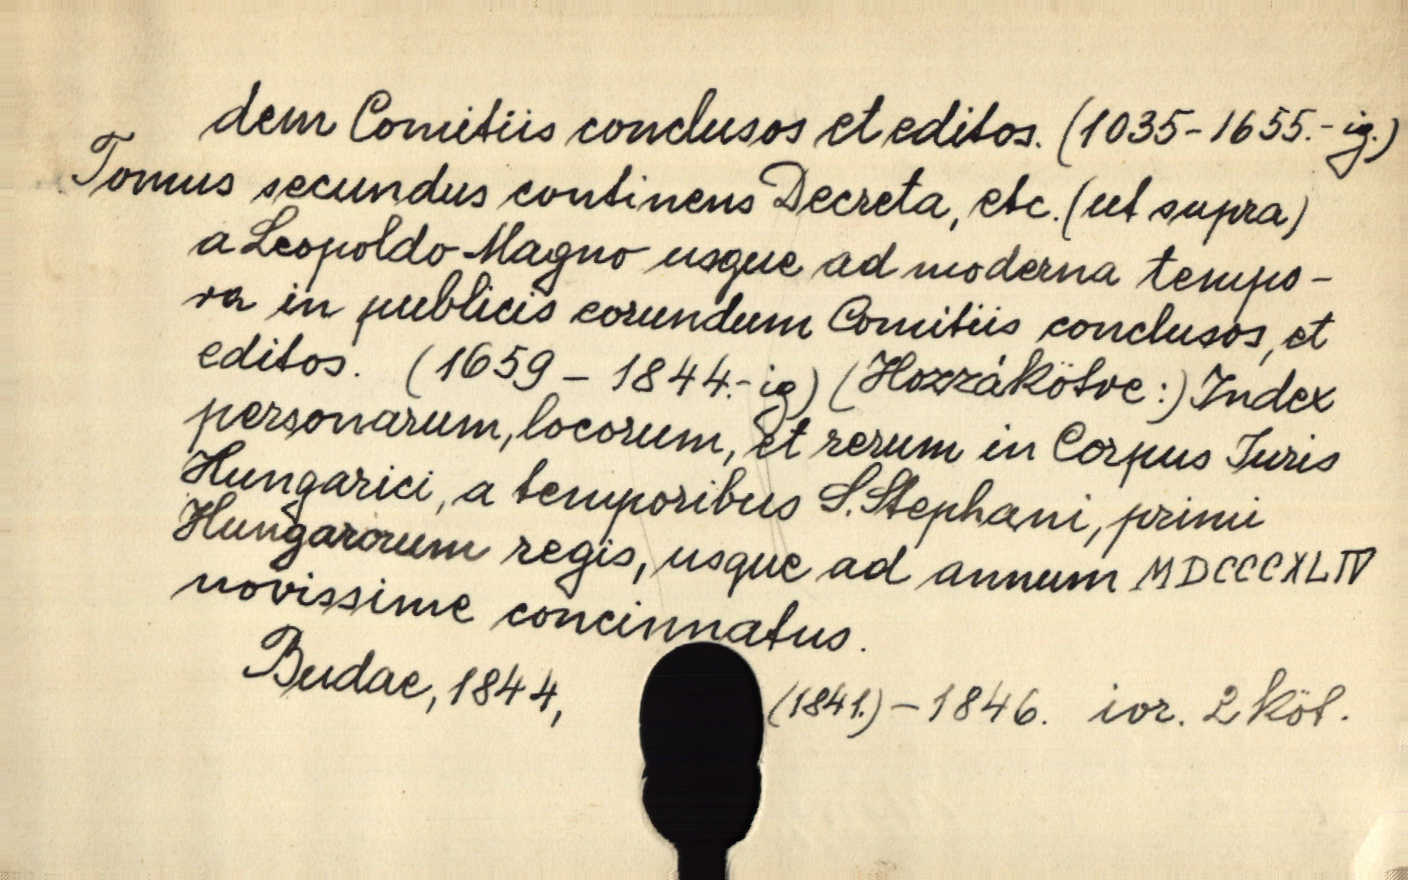 dem Comitiis conclusos et editos. (1035-1655.-ig.)
Tomus secundus continens Decreta, etc. (ut supra)
a Leopoldo Magno usque ad moderna tempo-
ra in publicis eorundum Comitiis conclusos, et
editos. (1659 - 1844.-ig) (Hozzákötve:) Index
personarum, locorum, et rerum in Corpus Iuris
Hungarici, a temporibus S. Stephani, primi
Hungarorum regis, usque ad annum MDCCCXLIV
novissime concinnatus.
Budae, 1844, (1841.) - 1846. ivr. 2 köt.